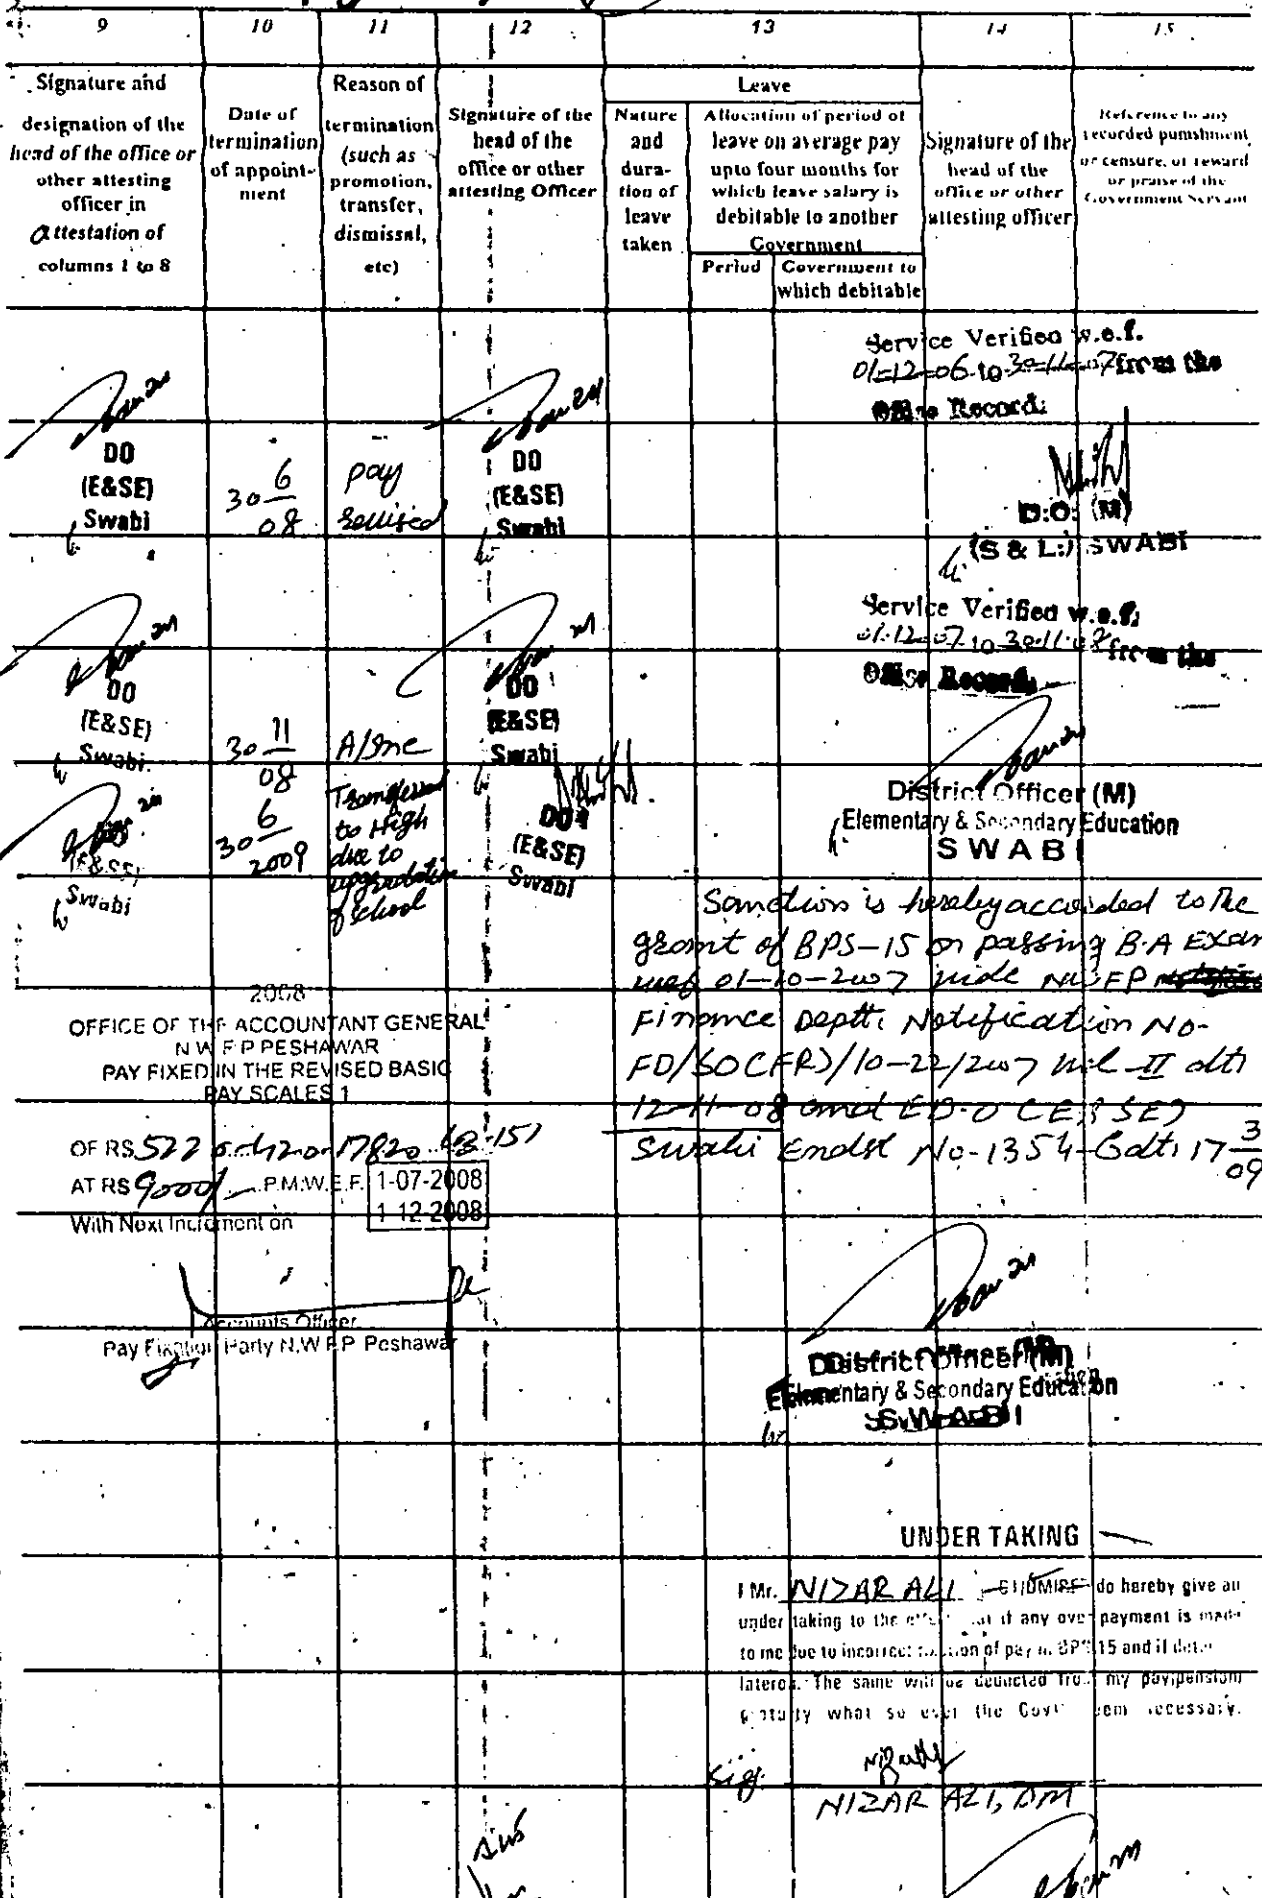 9 10 11 12 13 14 15
Signature and
designation of the
head of the office or
other attesting
officer in
attestation of
columns 1 to 8
Date of
termination
of appoint-
ment
Reason of
termination
(such as
promotion,
transfer,
dismissal,
etc)
Signature of the
head of the
office or other
attesting Officer
Leave
Nature
and
dura-
tion of
leave
taken
Allocation of period of
leave on average pay
upto four months for
which leave salary is
debitable to another
Government
Period
Government to
which debitable
Signature of the
head of the
office or other
attesting officer
Reference to any
recorded punishment
or censure, or reward
or praise of the
Government Servant
Service Verified w.e.f.
01-12-06 to 30-11-07 from the
Office Record.
DO
(E&SE)
Swabi
30 6
08
pay
DO
(E&SE)
Swabi
D.O. (M)
(S & L:) SWABI
Service Verified w.e.f.
01-12-07 to 30-11-08 from the
Office Record.
DO
(E&SE)
Swabi
30 11
08
A/Inc
DO
(E&SE)
Swabi
District Officer (M)
Elementary & Secondary Education
SWABI
(E&SE)
Swabi
30 6
2009
Transferred
to High
due to
upgradation
of school
DO
(E&SE)
Swabi
Sanction is hereby accorded to the
grant of BPS-15 on passing B.A Exam
wef 01-10-2007 vide NWFP
Finance Deptt: Notification No-
FD/SO(FR)/10-22/2007 Vol-II dt:
12-11-08 and ED.O (E&SE)
Swabi Endst No-1354-G dt: 17 3
09
2008
OFFICE OF THE ACCOUNTANT GENERAL
N.W.F.P PESHAWAR
PAY FIXED IN THE REVISED BASIC
PAY SCALES 1
OF RS 5220-420-17820 (B-15)
AT RS 9000/- P.M.W.E.F. 1-07-2008
With Next Increment on 1-12-2008
Accounts Officer
Pay Fixation Party N.W.F.P Peshawar
District Officer (M)
Elementary & Secondary Education
SWABI
UNDER TAKING
I Mr. NIZAR ALI do hereby give an
under taking to the if any over payment is made
to me due to incorrect of pay in BPS 15 and if
The same will be deducted from my pay/pension/
gratuity what so ever the Govt necessary.
Sig:
NIZAR ALI, DM